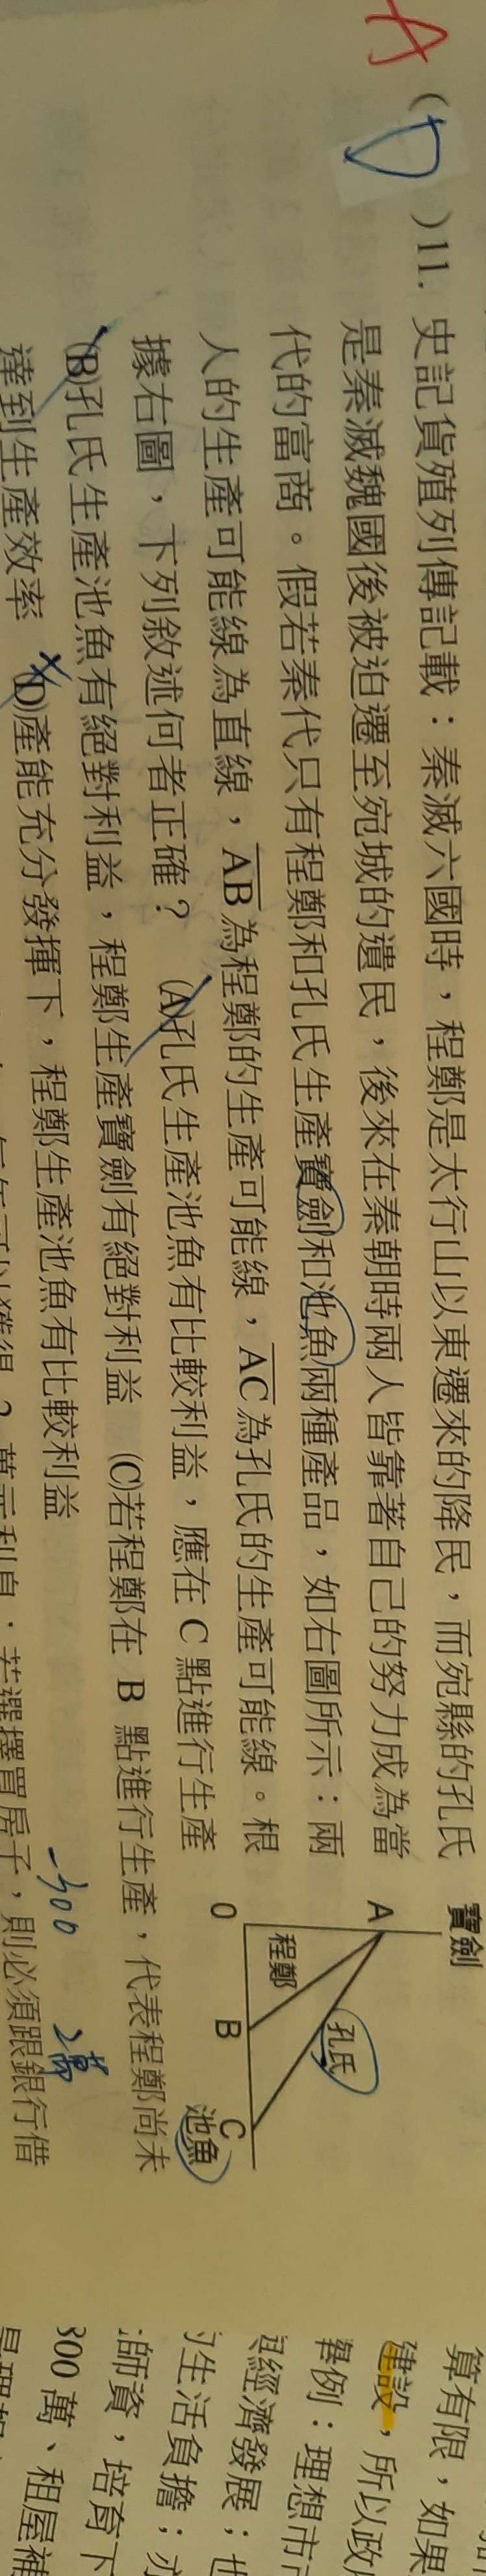 A
( D )11. 史記貨殖列傳記載：秦滅六國時，程鄭是太行山以東遷來的降民，而宛縣的孔氏
是秦滅魏國後被迫遷至宛城的遺民，後來在秦朝時兩人皆靠著自己的努力成為當
代的富商。假若秦代只有程鄭和孔氏生產寶劍和池魚兩種產品，如右圖所示：兩
人的生產可能線為直線，AB為程鄭的生產可能線，AC為孔氏的生產可能線。根
據右圖，下列敘述何者正確？ (A)孔氏生產池魚有比較利益，應在 C 點進行生產
(B)孔氏生產池魚有絕對利益，程鄭生產寶劍有絕對利益 (C)若程鄭在 B 點進行生產，代表程鄭尚未
達到生產效率 (D)產能充分發揮下，程鄭生產池魚有比較利益
寶劍
A
孔氏
程鄭
0 B C
池魚
-300 2萬
萬元利息；若選擇買房子，則必須跟銀行借
算有限，如果
建設，所以政
舉例：理想市
經濟發展；也
生活負擔；亦
師資，培育下
300 萬、租屋補